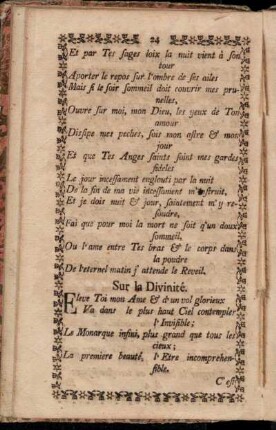 24
Et par Tes sages loix la nuit vient à son
tour
Aporter le repos sur l'ombre de ses ailes
Mais si le soir sommeil doit couvrir mes pru-
nelles,
Ouvre sur moi, mon Dieu, les yeux de Ton
amour
Dissipe mes peches, sois mon astre & mon
jour
Et que Tes Anges saints soint mes gardes
fideles
Le jour incessament englouti par la nuit
De la fin de ma vie incessament m'instruit.
Et je dois nuit & jour, saintement m'y re-
soudre,
Fai que pour moi la mort ne soit qu'un doux
sommeil,
Ou l'ame entre Tes bras & le corps dans
la poudre
De l'eternel matin j'attende le Reveil.
Sur la Divinité.
Eleve Toi mon Ame & d'un vol glorieux
Va dans le plus haut Ciel contempler
l'Invisible;
Le Monarque infini, plus grand que tous les
cieux;
La premiere beauté, l'Etre incomprehen-
sible.
C'est